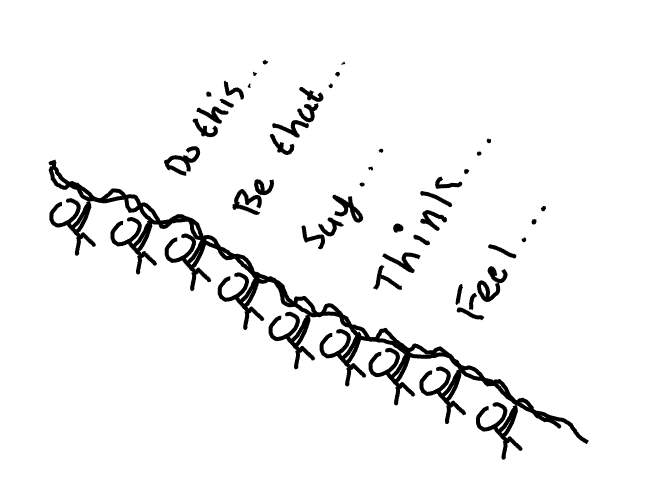 Do this...
Be that...
Say...
Think....
Feel...